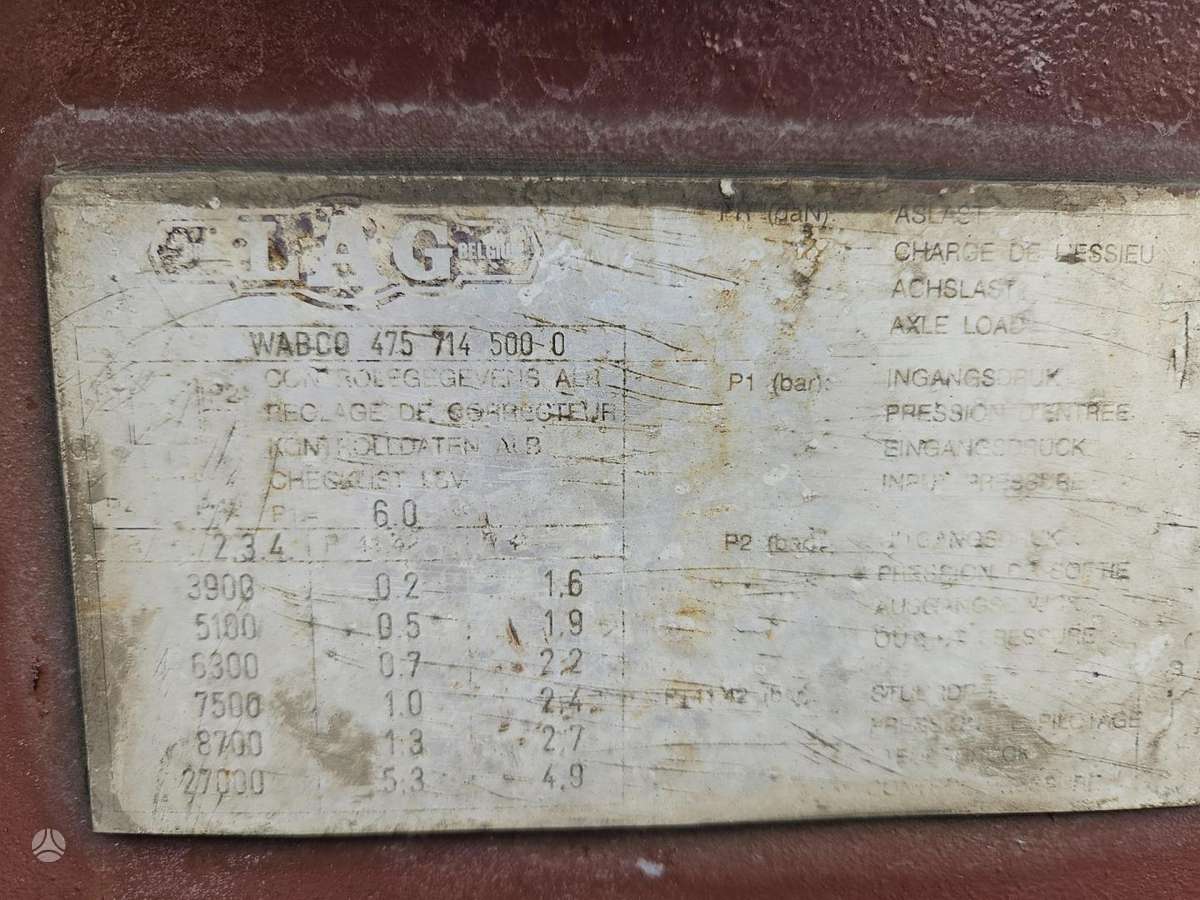 LAG BELGIUM
WABCO 475 714 500 0
P2
CONTROLEGEGEVENS ALR
REGLAGE DE CORRECTEUR
KONTROLLDATEN ALB
CHECKLIST LSV
P1 = 6.0
2.3.4
3900 0.2 1.6
5100 0.5 1.9
6300 0.7 2.2
7500 1.0 2.4
8700 1.3 2.7
27000 5.3 4.9
(daN) ASLAST
CHARGE DE L'ESSIEU
ACHSLAST
AXLE LOAD
P1 (bar): INGANGSDRUK
PRESSION D'ENTREE
EINGANGSDRUCK
INPUT PRESSURE
P2 (bar):
PRESSION DE SORTIE
PRESSURE
P 41 42
PRESSION DE PILOTAGE